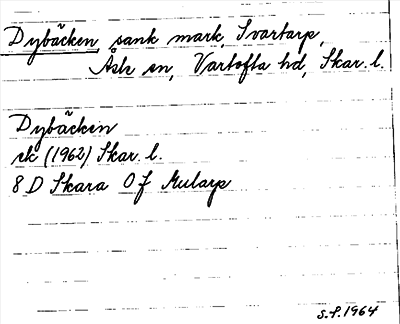 Dybäcken, sank mark, Svartarp,
Åsle sn, Vartofta hd, Skar. l.
Dybäcken
ek (1962) Skar. l.
8 D Skara 0 f Mularp
S.F. 1964